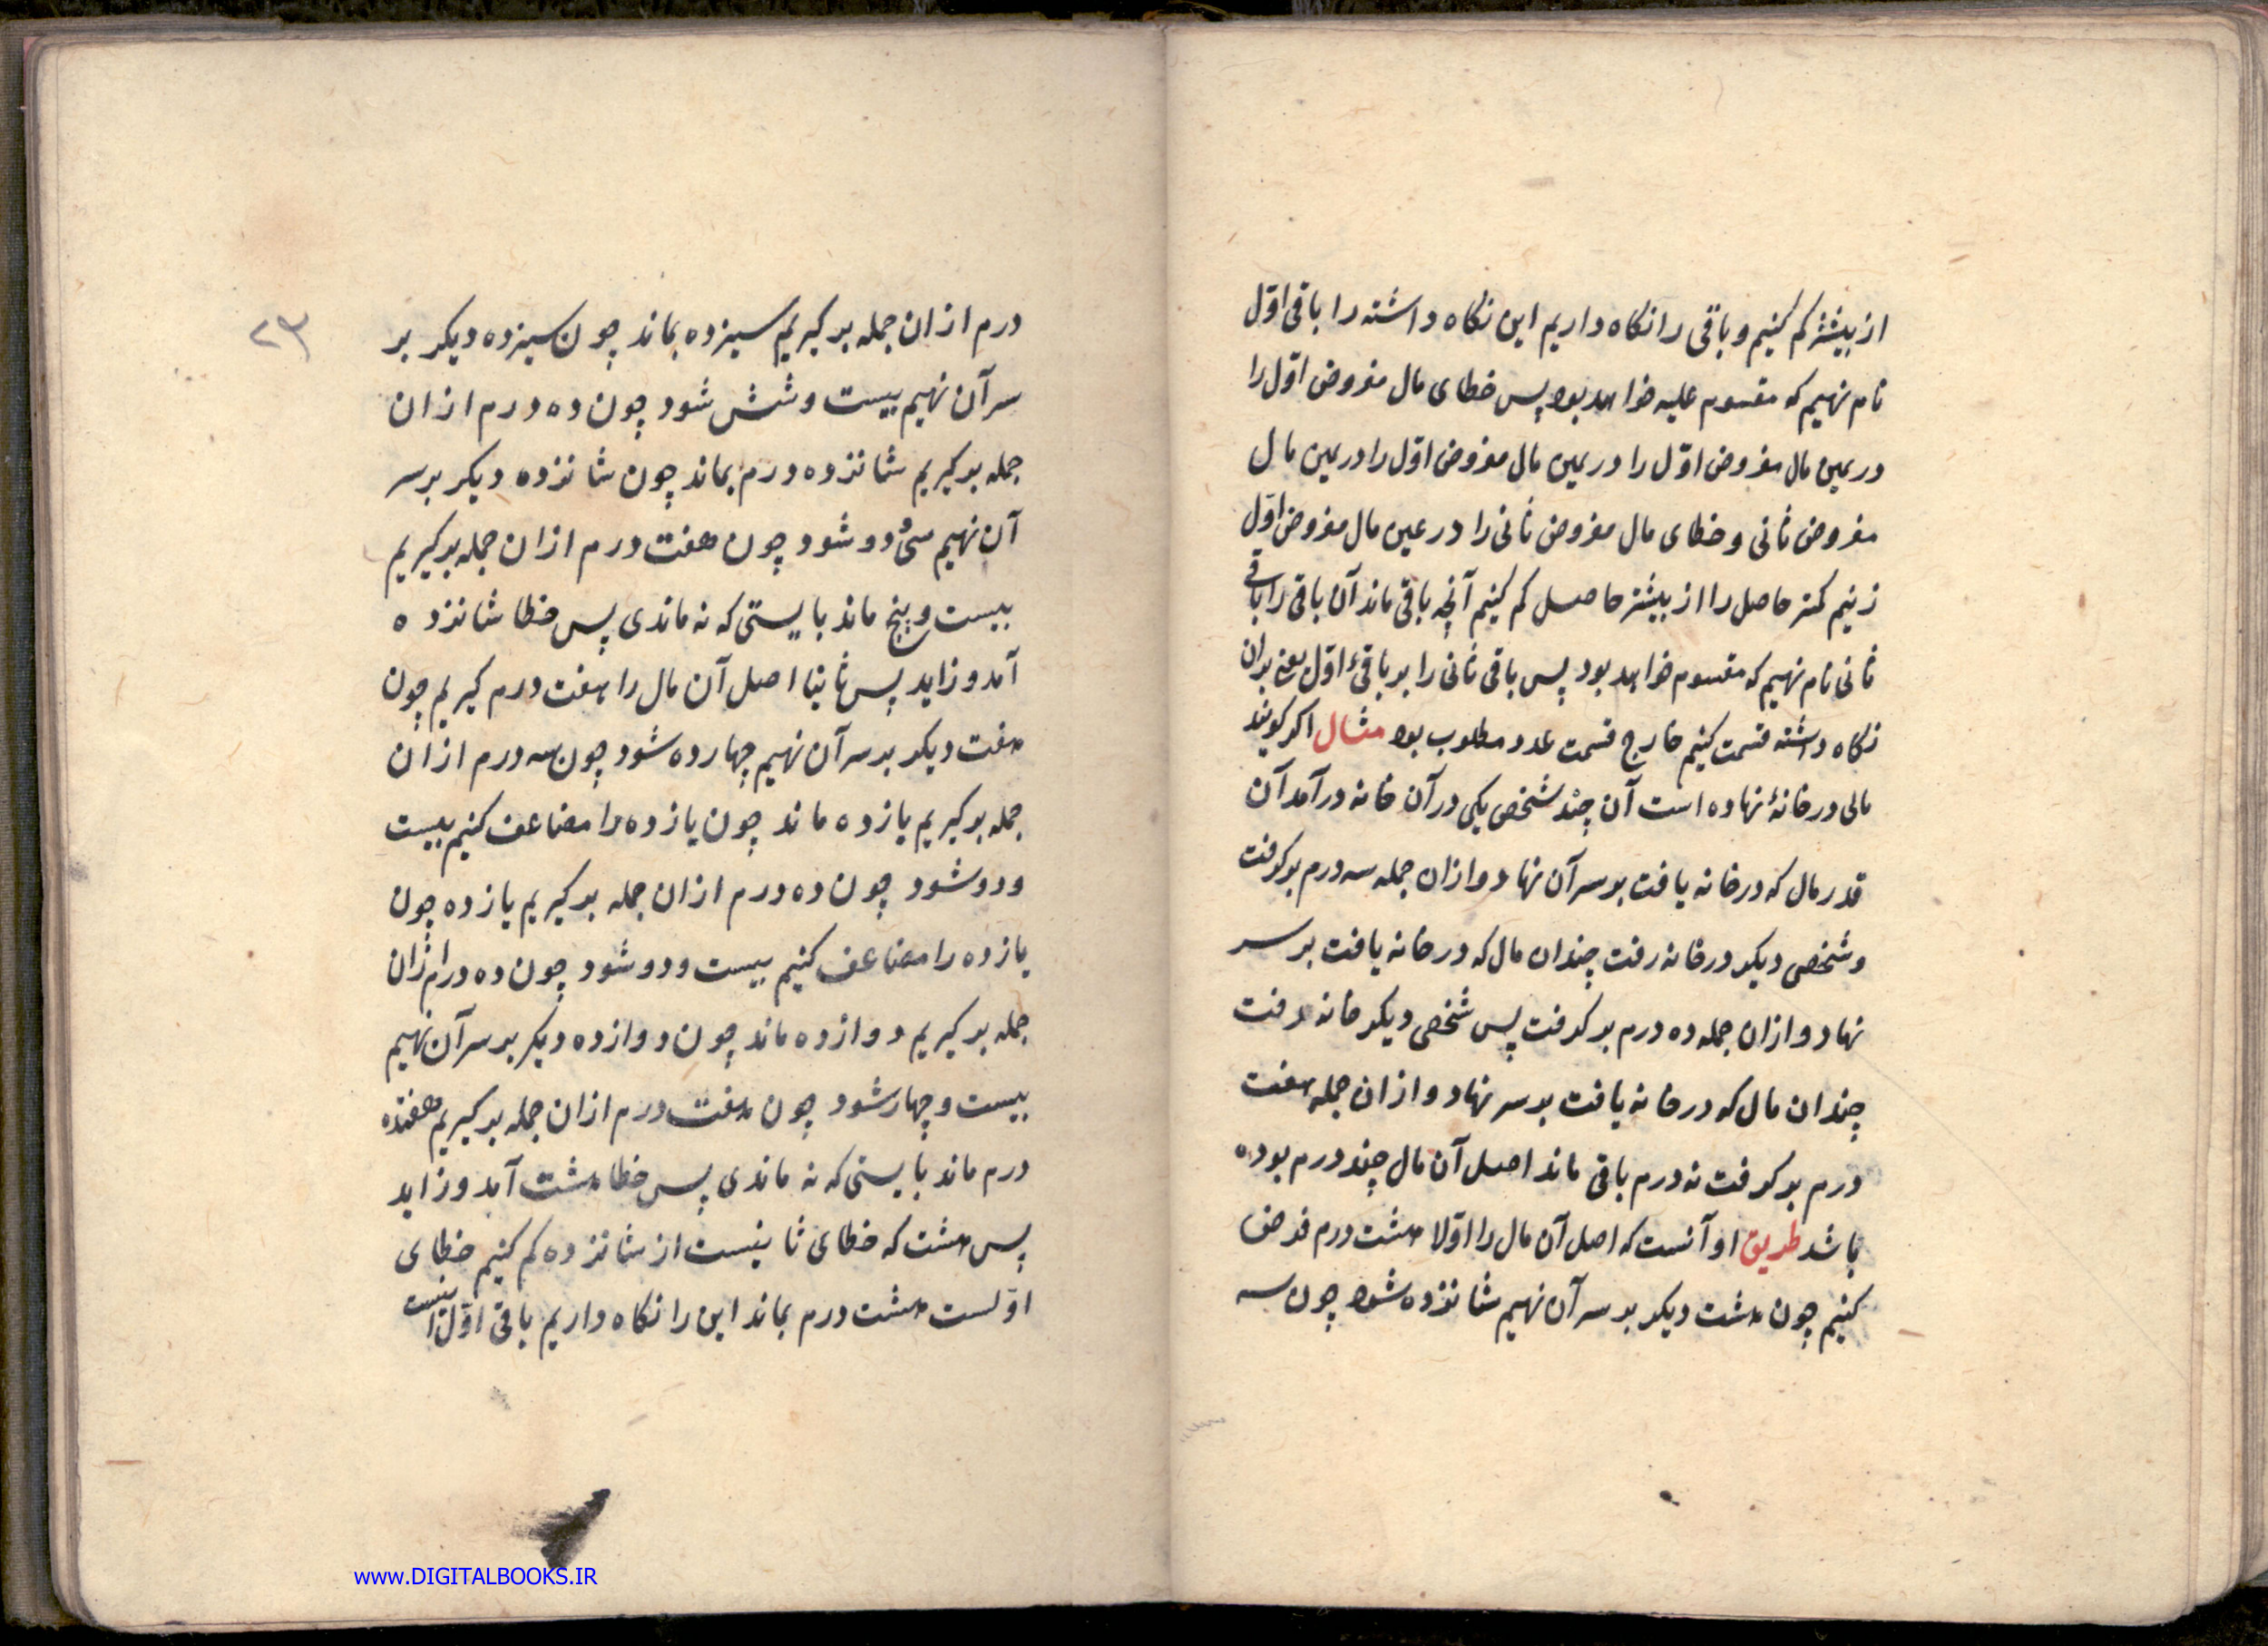 از بیشتر کم کنیم و باقی را نکاه داریم این نکاه داشته را باقی اوّل
نام نهیم که مقسوم علیه خواهد بود پس خطای مال مفروض اوّل را
در عین مال مفروض اوّل را در عین مال مفروض اوّل را در عین مال
مفروض ثانی و خطای مال مفروض ثانی را در عین مال مفروض اوّل
زنیم کمتر حاصل را از بیشتر حاصل کم کنیم آنچه باقی ماند آن باقی را باقی
ثانی نام نهیم که مقسوم خواهد بود پس باقی ثانی را بر باقیٔ اوّل یعنی بران
نکاه داشته قسمت کنیم خارج قسمت عدد مطلوب بود مثال اکر کویند
مالی در خانهٔ نهاده است آن چند شخصی یکی در آن خانه در آمد آن
قدر مال که در خانه یافت بر سر آن نهاد و ازان جمله سه درم بر کرفت
و شخصی دیکر در خانه رفت چندان مال که در خانه یافت بر سر
نهاد و ازان جمله ده درم بر کرفت پس شخصی دیکر خانه رفت
چندان مال که در خانه یافت بر سر نهاد و ازان جمله هفت
درم بر کرفت نه درم باقی ماند اصل آن مال چند درم بوده
باشد طریق او آنست که اصل آن مال را اوّلا هشت درم فرض
کنیم چون هشت دیکر بر سر آن نهیم شانزده شود چون سه
۲۳
درم ازان جمله بر کیریم سیزده بماند چون سیزده دیکر بر
سر آن نهیم بیست و شش شود چون ده درم ازان
جمله بر کیریم شانزده درم بماند چون شانزده دیکر بر سر
آن نهیم سی و دو شود چون هفت درم ازان جمله بر کیریم
بیست و پنج ماند بایستی که نه ماندی پس خطا شانزده
آمد و زاید پس ثانیا اصل آن مال را هفت درم کیریم چون
هفت دیکر بر سر آن نهیم چهارده شود چون سه درم ازان
جمله بر کیریم یازده ماند چون یازده را مضاعف کنیم بیست
و دو شود چون ده درم ازان جمله بر کیریم یازده چون
یازده را مضاعف کنیم بیست و دو شود چون ده درم ازان
جمله بر کیریم دوازده ماند چون دوازده دیکر بر سر آن نهیم
بیست و چهار شود چون هفت درم ازان جمله بر کیریم هفتده
درم ماند بایستی که نه ماندی پس خطا هشت آمد و زاید
پس هشت که خطای ثانیست از شانزده کم کنیم خطای
اوّلست هشت درم بماند این را نکاه داریم باقی اوّل اینست
www.DIGITALBOOKS.IR